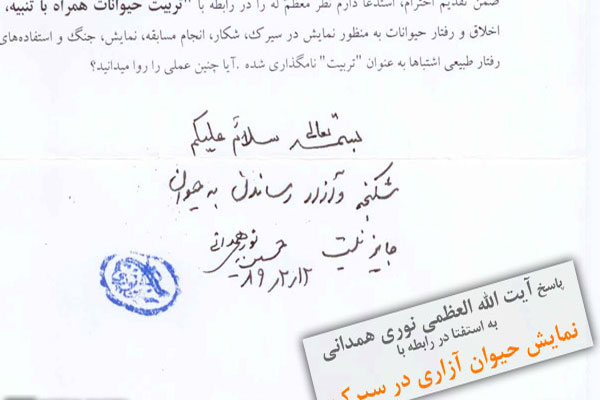 ضمن تقدیم احترام، استدعا دارم نظر معظم له را در رابطه با "تربیت حیوانات همراه با تنبیه،
اخلاق و رفتار حیوانات به منظور نمایش در سیرک، شکار، انجام مسابقه، نمایش، جنگ و استفاده‌های
رفتار طبیعی اشتباها به عنوان "تربیت" نامگذاری شده .آیا چنین عملی را روا میدانید؟
بسمه تعالی سلام علیکم
شکنجه و آزار رساندن به حیوان
جایز نیست
حسین نوری همدانی
۸۹/۲/۱۲
پاسخ آیت الله العظمی نوری همدانی
به استفتا در رابطه با
نمایش حیوان آزاری در سیرک